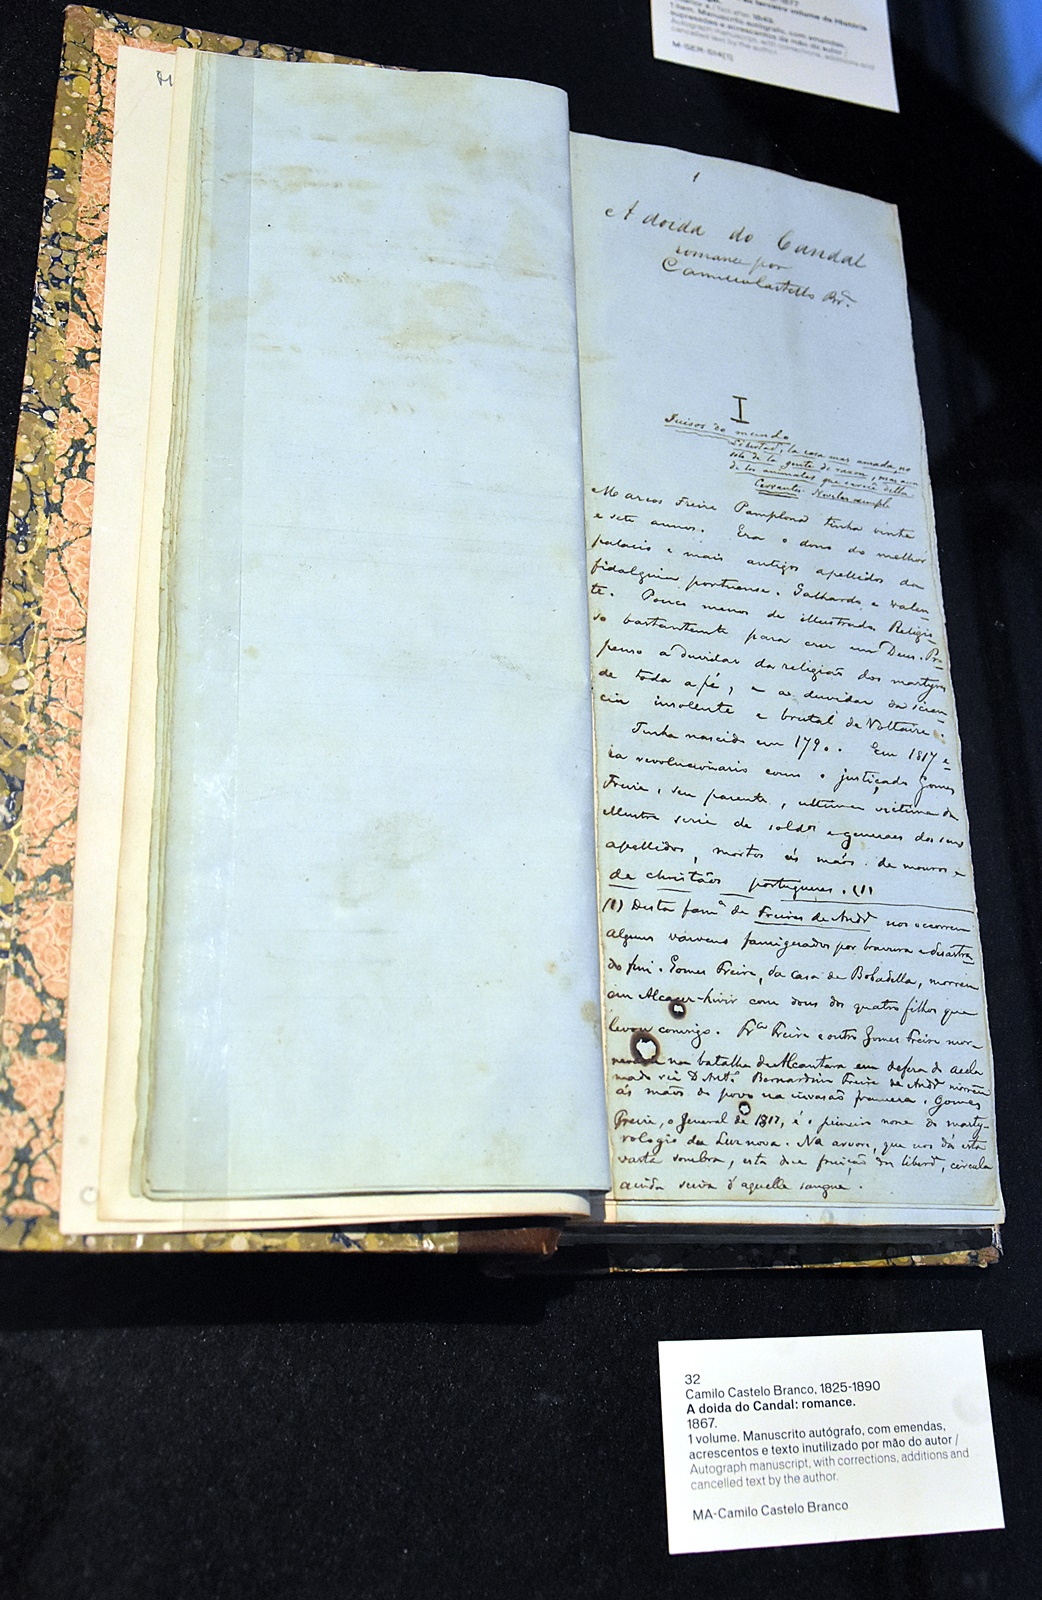 1877
terceiro volume da História
1 tem. Manuscrito autógrafo, com emendas,
supressões e acrescentos da mão do autor /
Autograph manuscript, with corrections, additions and
cancelled text by the author.
M-SER-514(1)
1
A doida do Candal
romance por
Camillo Castello Br.co
I
Juisos do mundo
Libertad, la cosa mas amada, no
solo de la gente de razon, mas aun
de los animales que carecen della
Cervantes. Novelas exempl.
Marcos Freire Pamplona tinha vinte
e sete annos. Era o dono do melhor
palacio e mais antigos apellidos da
fidalguia portuense. Galhardo e valen-
te. Pouco menos de illustrado. Religio-
so bastantemente para crer em Deus. Pro-
penso a duvidar da religião dos martyres
de toda a fé, e a duvidar da scien-
cia insolente e brutal de Voltaire.
Tinha nascido em 1790. Em 1817 e-
ra revolucionario com o justiçado Gomes
Freire, seu parente, ultima victima da
illustre serie de soldos e generaes dos seus
apellidos, mortos ás mãos de mouros e
de christãos portugueses. (1)
(1) Desta fam.a de Freires de Andr.e nos occorrem
alguns varoens famigerados por bravura e desastra-
do fim. Gomes Freire, da casa de Bobadella, morreu
em Alcacer-kivir com dous dos quatro filhos que
levou comsigo. Fr.co Freire e outro Gomes Freire mor-
na batalha de Alcantara em defesa do accla
mado rei D. Ant.o Bernardim Freire de Andr.e morreu
ás mãos do povo na invasão francesa. Gomes
Freire, o General de 1817, é o primeiro nome do marty-
rologio da Luz nova. Na arvore, que nos dá esta
vasta sombra, esta dice fruição da liberd.e, circula
ainda seiva d'aquelle sangue.
32
Camilo Castelo Branco, 1825-1890
A doida do Candal: romance.
1867.
1 volume. Manuscrito autógrafo, com emendas,
acrescentos e texto inutilizado por mão do autor /
Autograph manuscript, with corrections, additions and
cancelled text by the author.
MA-Camilo Castelo Branco